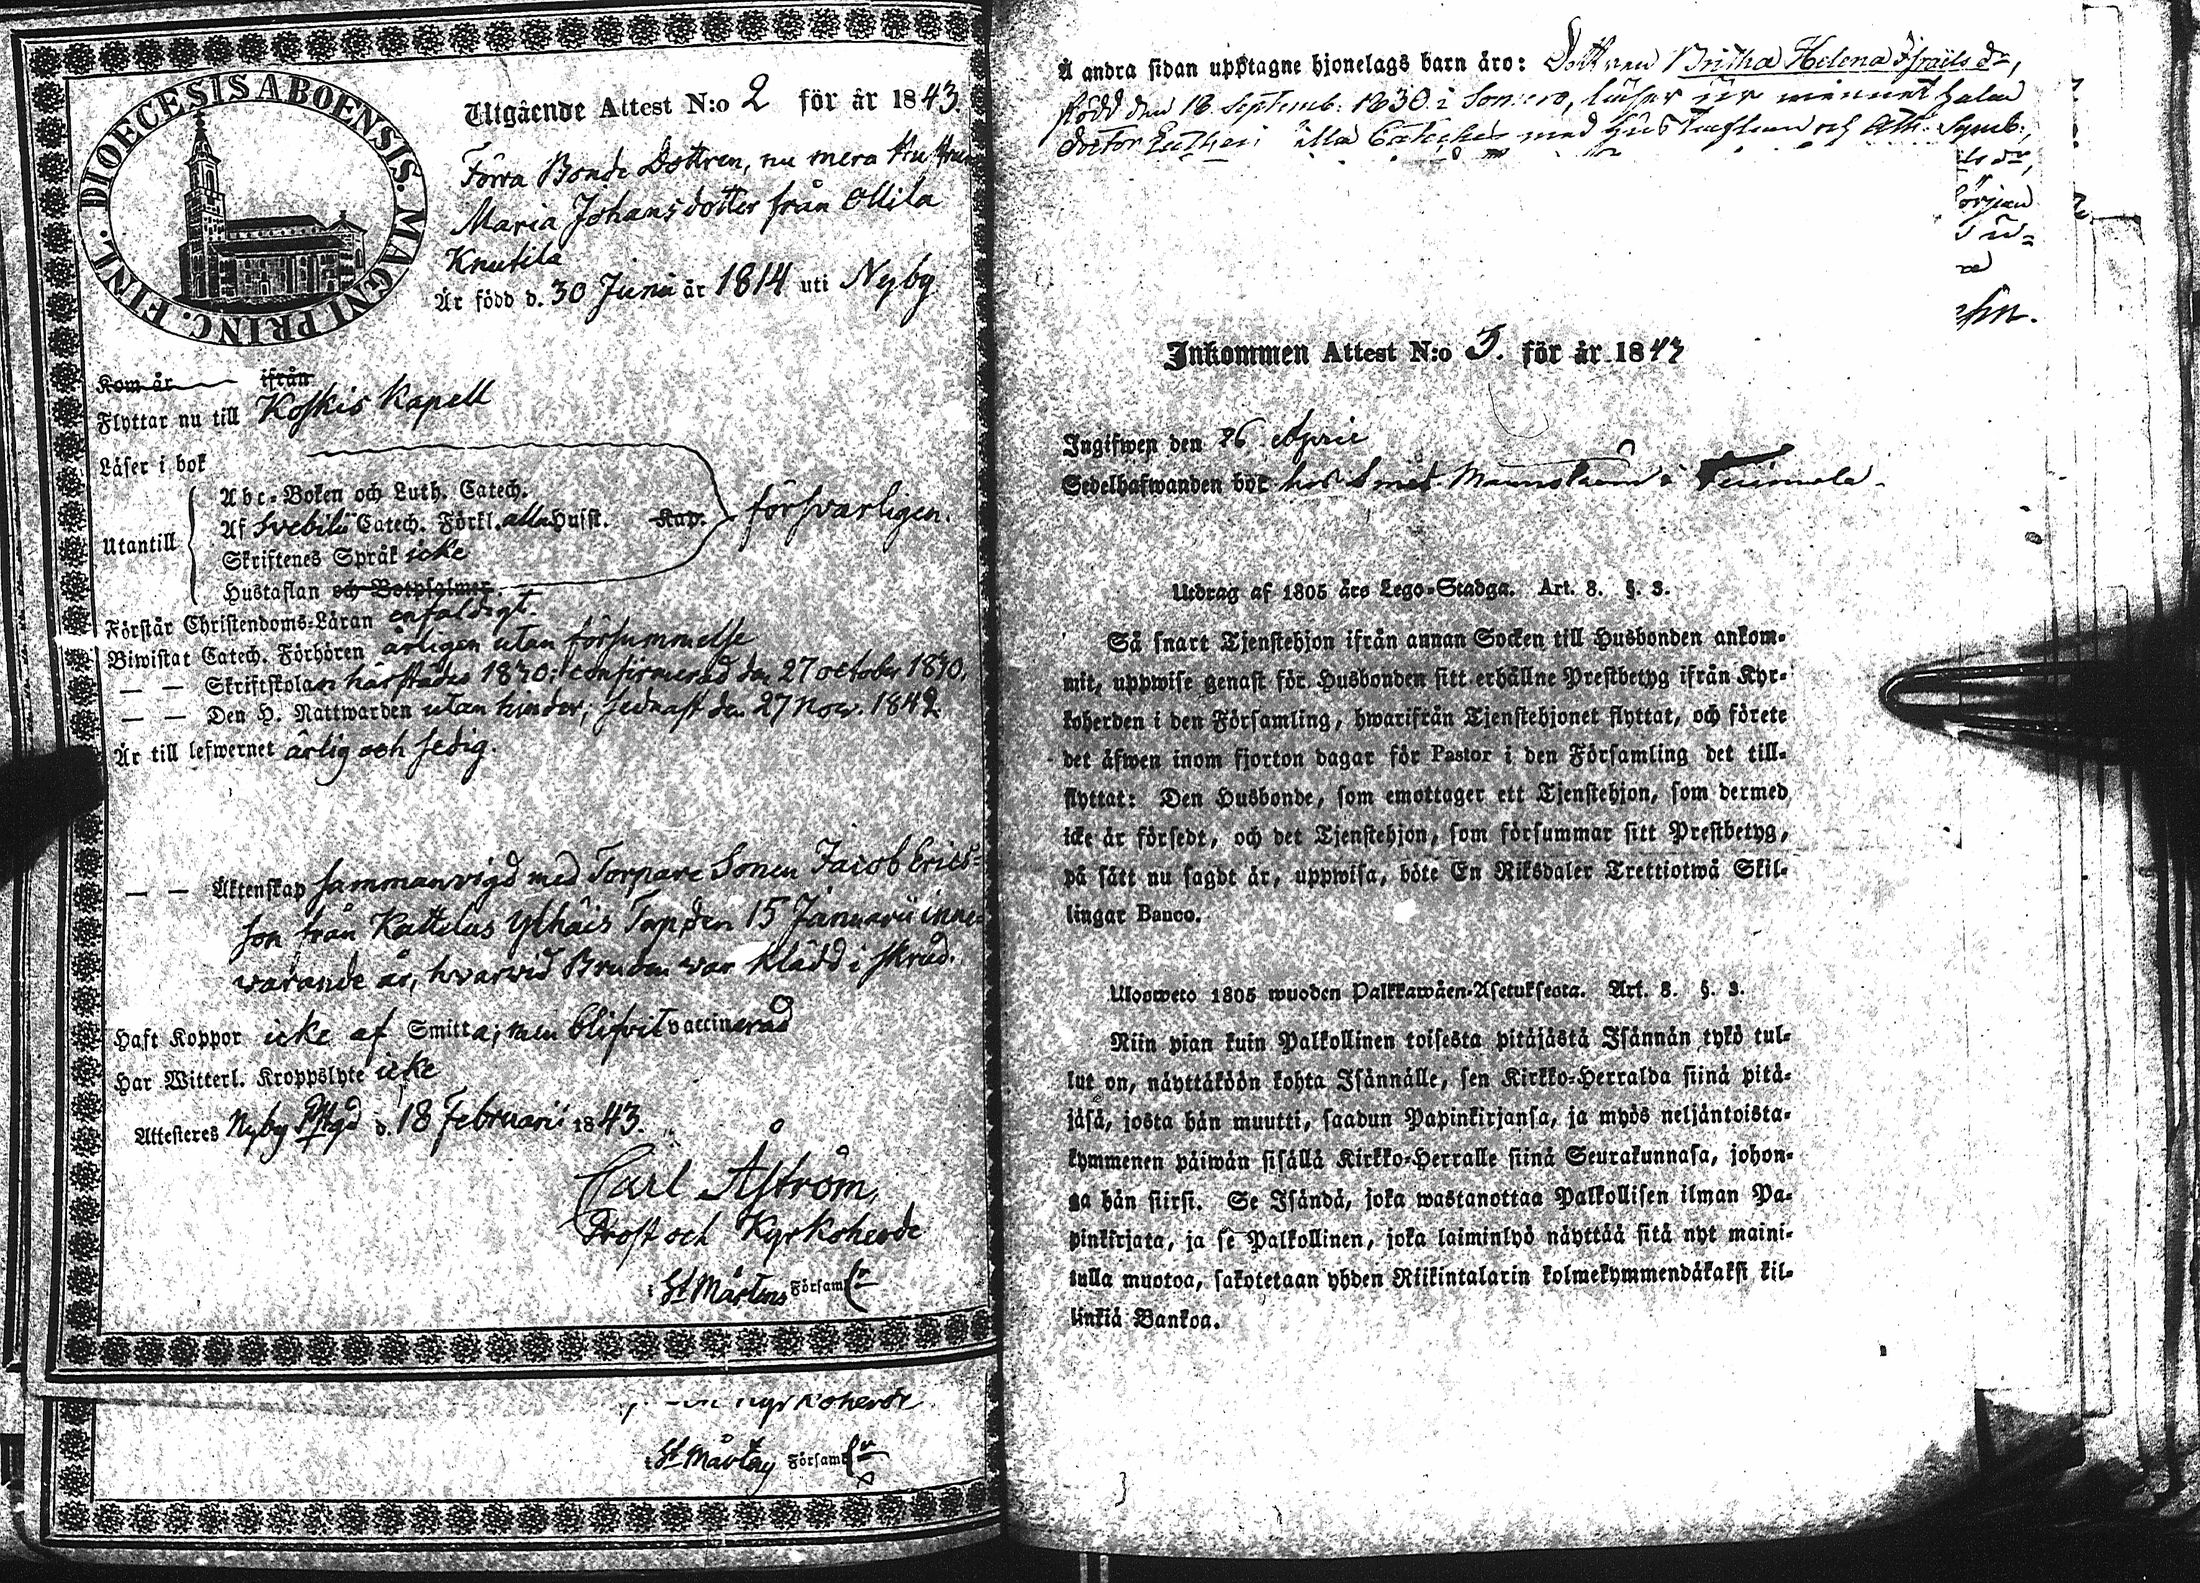 DIOECESIS ABOENSIS. MAGNI PRINC. FINL.
Utgående Attest N:o 2 för år 1843.
Förra Bonde Dottren, nu mera Hustrun
Maria Johansdotter från Ollila
Knutila
Är född d. 30 Junii år 1814 uti Nyby
Kom år ifrån
Flyttar nu till Koskis Kapell
Läser i bok
Utantill
Abc-Boken och Luth. Catech.
Af Svebilii Catech. Förkl. alla Hufst. Kap. försvarligen.
Skriftenes Språk icke
Hustaflan och Botpsalmer.
Förstår Christendoms-Läran enfaldigt.
Biwistat Catech. Förhören årligen utan försummelse
— — Skriftskolan härstädes 1830; confirmerad den 27 october 1830,
— — Den H. Nattwarden utan hinder; sednast den 27 Nov. 1842.
Är till lefwernet ärlig och sedig.
— — Äktenskap sammanvigd med Torpare Sonen Jacob Erics=
son från Kattelus Ylhäis Torp den 15 Januarii inne=
varande år, hvarvid Bruden var klädd i skrud.
Haft Koppor icke af Smitta; men blifvit vaccinerad
Har Witterl. Kroppslyte icke
Attesteres Nyby Pstgd d. 18 Februarii 1843.
Carl Åström,
Prost och Kyrkoherde
i St Mårtens Församl:r
Kyrkoherde
i St Mårtens Församl:r
Å andra sidan upptagne hjonelags barn äro: Dottren Britha Helena Israels dr,
född den 18 Septemb. 1830 i Somero, läser ur minnet
doctor Lutheri lilla Cateches med Hustaflan och Ath. Symb:,
Inkommen Attest N:o 3. för år 1843
Ingifwen den 26 April
Sedelhafwanden bor hos
Utdrag af 1805 års Lego-Stadga. Art. 8. §. 3.
Så snart Tjenstehjon ifrån annan Socken till Husbonden ankom-
mit, uppwise genast för Husbonden sitt erhållne Prestbetyg ifrån Kyr-
koherden i den Församling, hwarifrån Tjenstehjonet flyttat, och förete
det äfwen inom fjorton dagar för Pastor i den Församling det till-
flyttat: Den Husbonde, som emottager ett Tjenstehjon, som dermed
icke är försedt, och det Tjenstehjon, som försummar sitt Prestbetyg,
på sätt nu sagdt är, uppwisa, böte En Riksdaler Trettiotwå Skil-
lingar Banco.
Ulosweto 1805 wuoden Palkkawäen-Asetuksesta. Art. 8. §. 3.
Niin pian kuin Palkollinen toisesta pitäjästä Isännän tykö tul-
lut on, näyttäköön kohta Isännälle, sen Kirkko-Herralda siinä pitä-
jäsä, josta hän muutti, saadun Papinkirjansa, ja myös neljäntoista-
kymmenen päiwän sisällä Kirkko-Herralle siinä Seurakunnasa, johon-
ga hän siirsi. Se Isändä, joka wastanottaa Palkollisen ilman Pa-
pinkirjata, ja se Palkollinen, joka laiminlyö näyttää sitä nyt maini-
tulla muotoa, sakotetaan yhden Riikintalarin kolmekymmendäkaksi kil-
linkiä Bankoa.